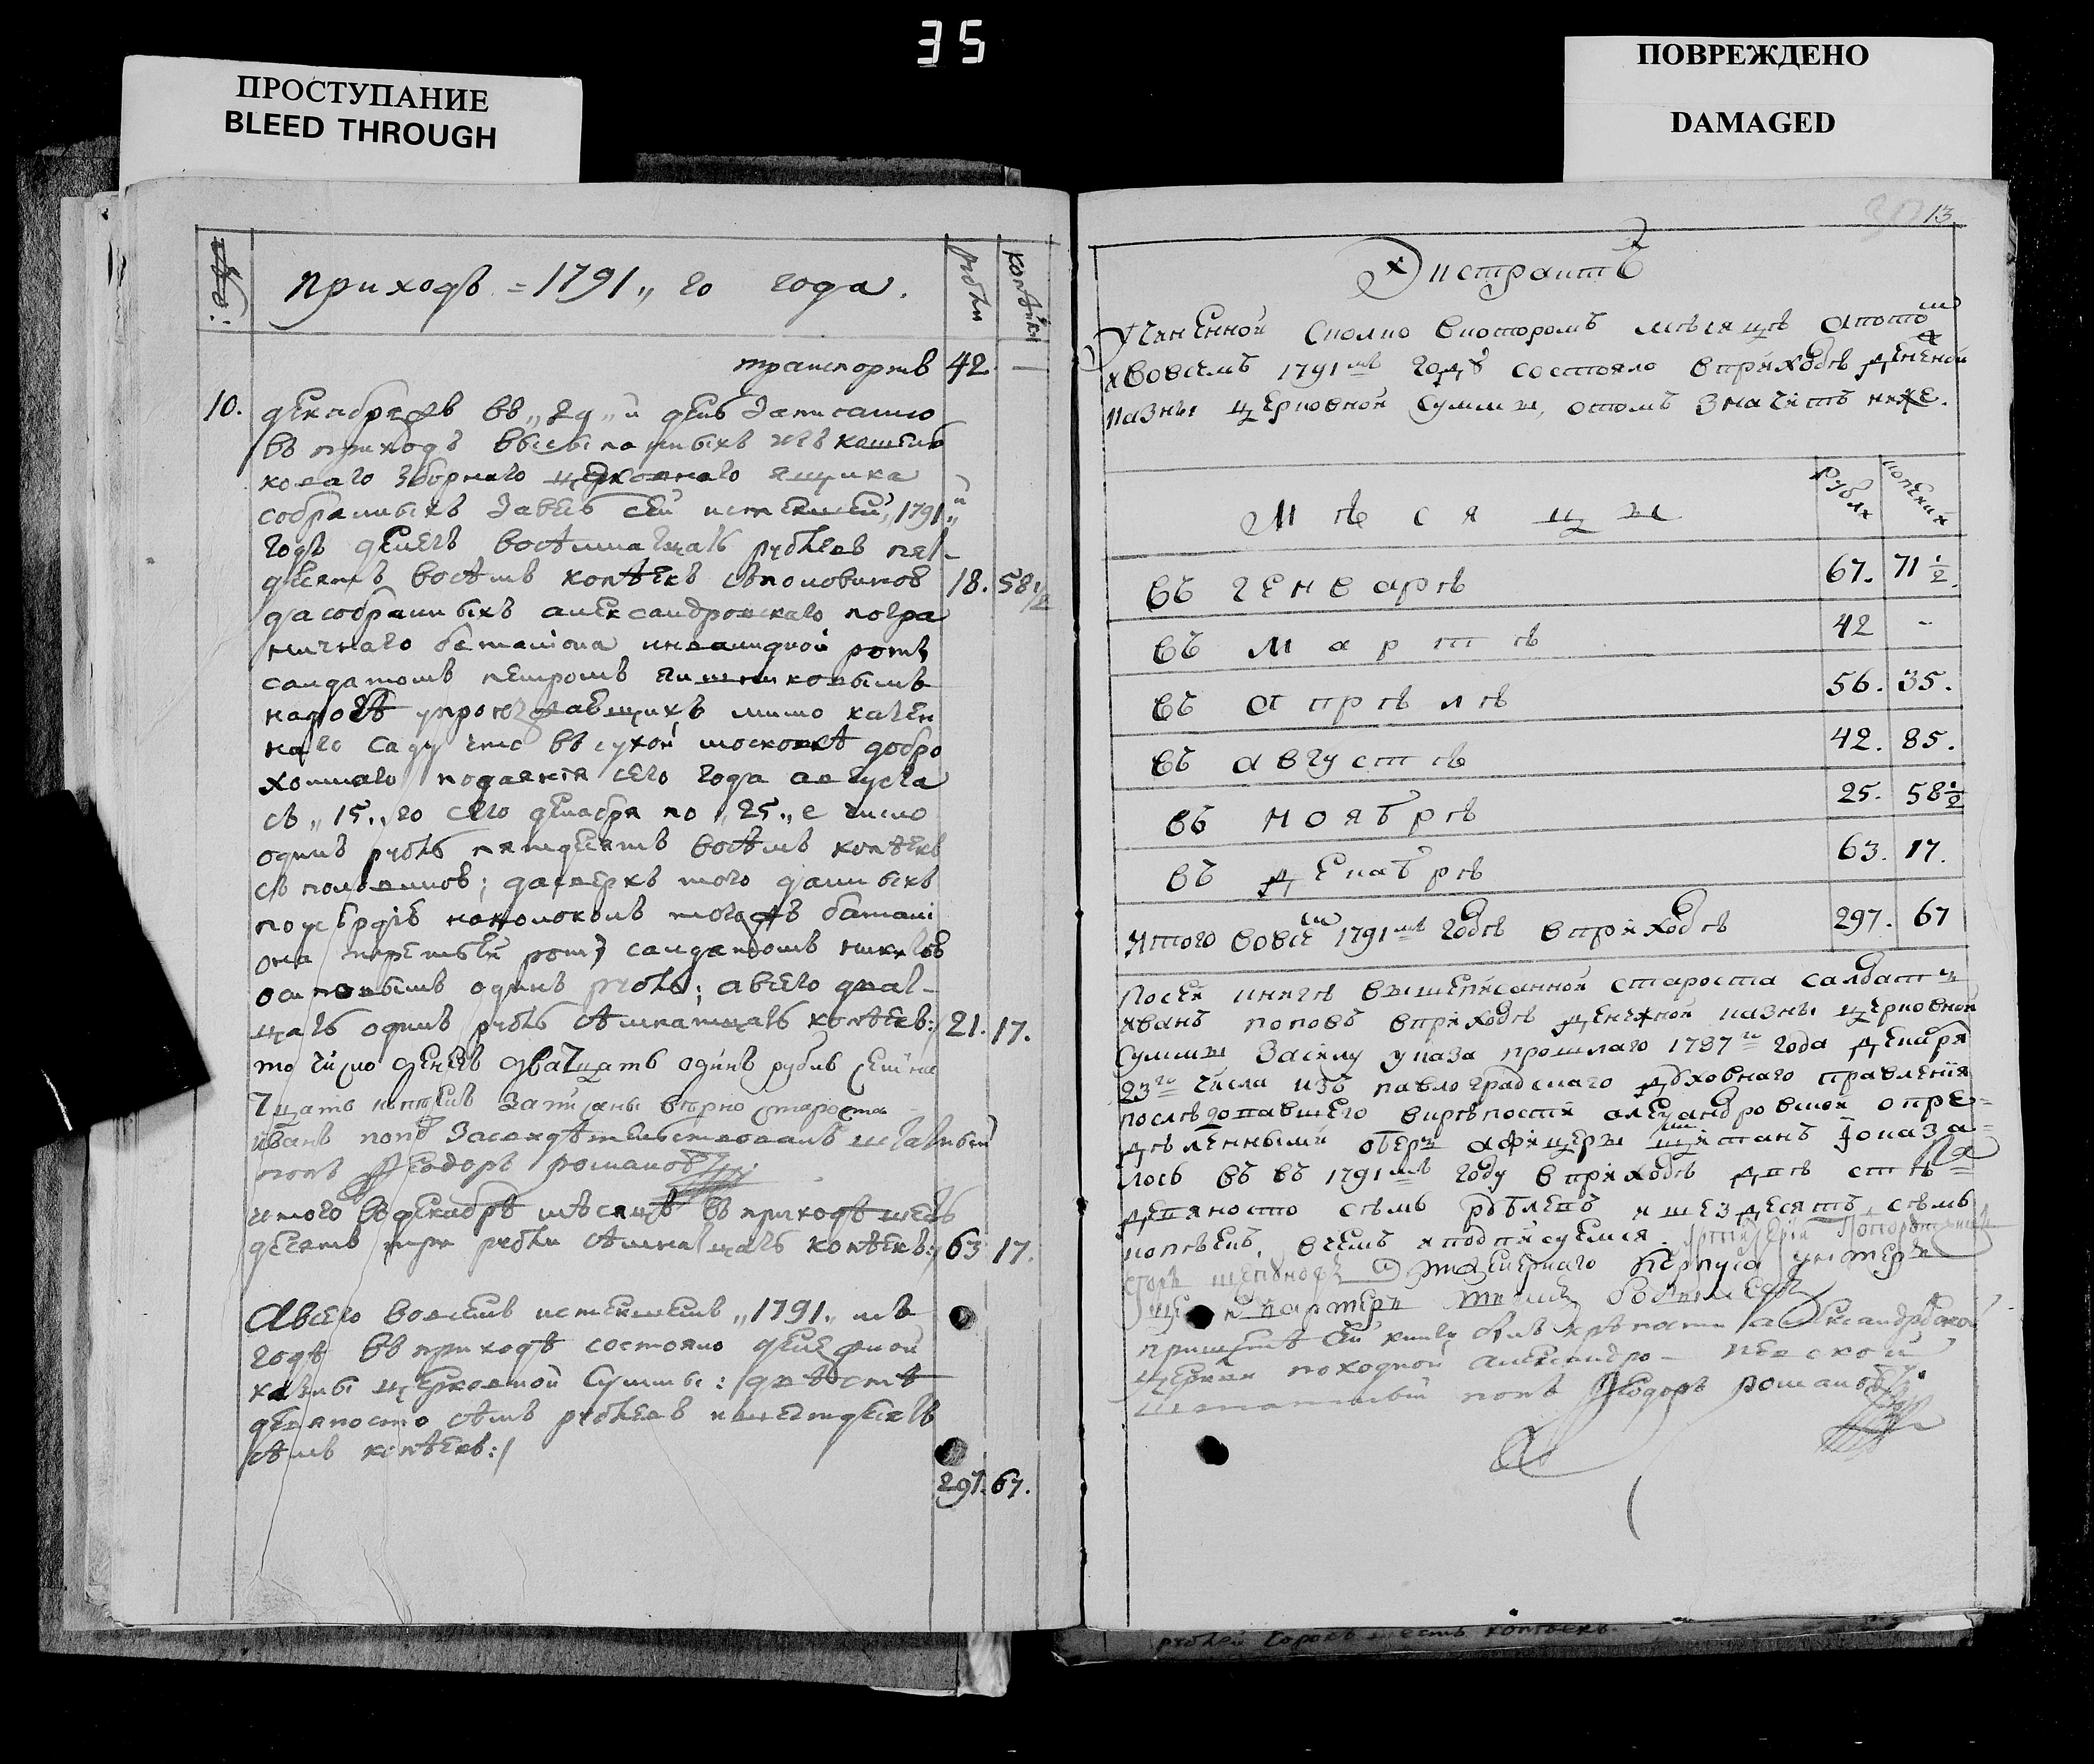 35
ПРОСТУПАНИЕ
BLEED THROUGH
ПОВРЕЖДЕНО
DAMAGED
приходъ = 1791 „ го года.
рубли
копѣйки
транспортъ 42 —
10. декабря въ „ день записанно
въ приходъ высыпанныхъ изъ кошель
коваго зборнаго церковнаго ящика
собранныхъ завесь сей истекшей „ 1791 „ й
годъ денегъ восѣмнатцать рублевъ пят
десятъ восѣмъ копѣекъ съполовиною 18. 58 1/2
дасобранныхъ александровскаго погра
ничнаго баталiона инвалидной роты
салдатомъ петромъ
мимо казен
наго саду что въ сухой московкѣ добро
хотнаго подаянiя сего года августа
съ „ 15 „ го сего декабря по „ 25 „ е число
одинъ рубль пятдесятъ восѣмъ копѣекъ
съ половиною; дасверхъ того данныхъ
поусердiю наколоколъ батали
она третьей роты салдатомъ
осиповымъ одинъ рубль; авсего дват-
цать одинъ рубль сѣмнатцать копѣекъ :/ 21. 17.
то число денегъ дватцать одинъ рубль семна
тцать копѣекъ записаны вѣрно староста
иванъ попъ Засвидѣтельствовалъ штатный
попъ Феодоръ романовъ
итого въдекабрѣ мѣсяцѣ въ приходѣ шесть
десятъ три рубли сѣмнатцать копѣекъ :/ 63 17.
Авсего вовсемъ истекшемъ „ 1791 „ мъ
годѣ въ приходѣ состояло денежной
казны церковной Суммы: двѣстѣ
девяносто сѣмъ рублевъ ишестдесятъ
сѣмъ копѣекъ :/
297. 67.
13
Экстрактъ
Учиненной Сколко вкоторомъ мѣсяцѣ апотом
ивовсемъ 1791 мъ году состояло вприходѣ денежной
казны церковной Суммы, отомъ значитъ ниже.
Мѣсяцы
Рубли
копейки
въ генварѣ 67. 71 1/2.
въ мартѣ 42 -
въ апрѣлѣ 56. 35.
въ августѣ 42. 85.
въ ноябрѣ 25. 58 1/2
въ декабрѣ 63. 17.
итого вовсем 1791 мъ годѣ вприходѣ 297. 67
посей книгѣ вышеписанной староста салдатъ
иванъ поповъ вприходѣ денежной казны церковной
суммы Засилу указа прошлаго 1787 го года декабря
23 го числа изъ павлоградскаго духовнаго правленiя
послѣдовавшего вкрѣпости александровской опре=
дѣленными оберъ афицеры щитанъ iоказа=
лось въ въ 1791 мъ году вприходѣ двѣ стѣ=
девяносто сѣмъ рублевъ и шездесятъ сѣмъ
копѣекъ, вчемъ иподписуемся.
Инженернаго Корпуса
сей книгу крѣпости александровской
церкви походной александро - невской
штатный попъ Феодоръ романовъ
рублей сорокъ шесть копѣекъ.